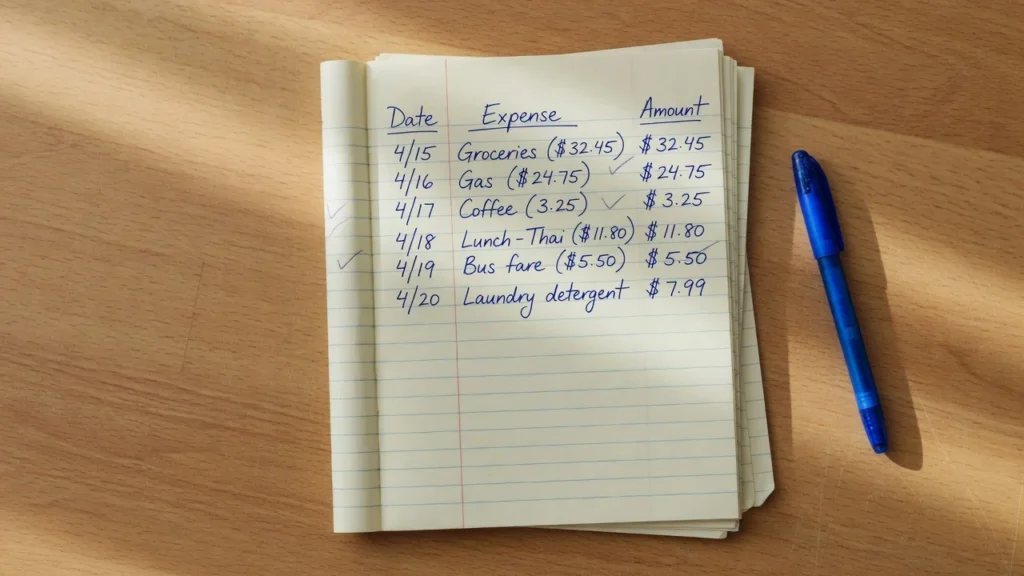 Date Expense Amount
4/15 Groceries ($32.45) $32.45
4/16 Gas ($24.75) $24.75
4/17 Coffee (3.25) $3.25
4/18 Lunch-Thai ($11.80) $11.80
4/19 Bus fare ($5.50) $5.50
4/20 Laundry detergent $7.99